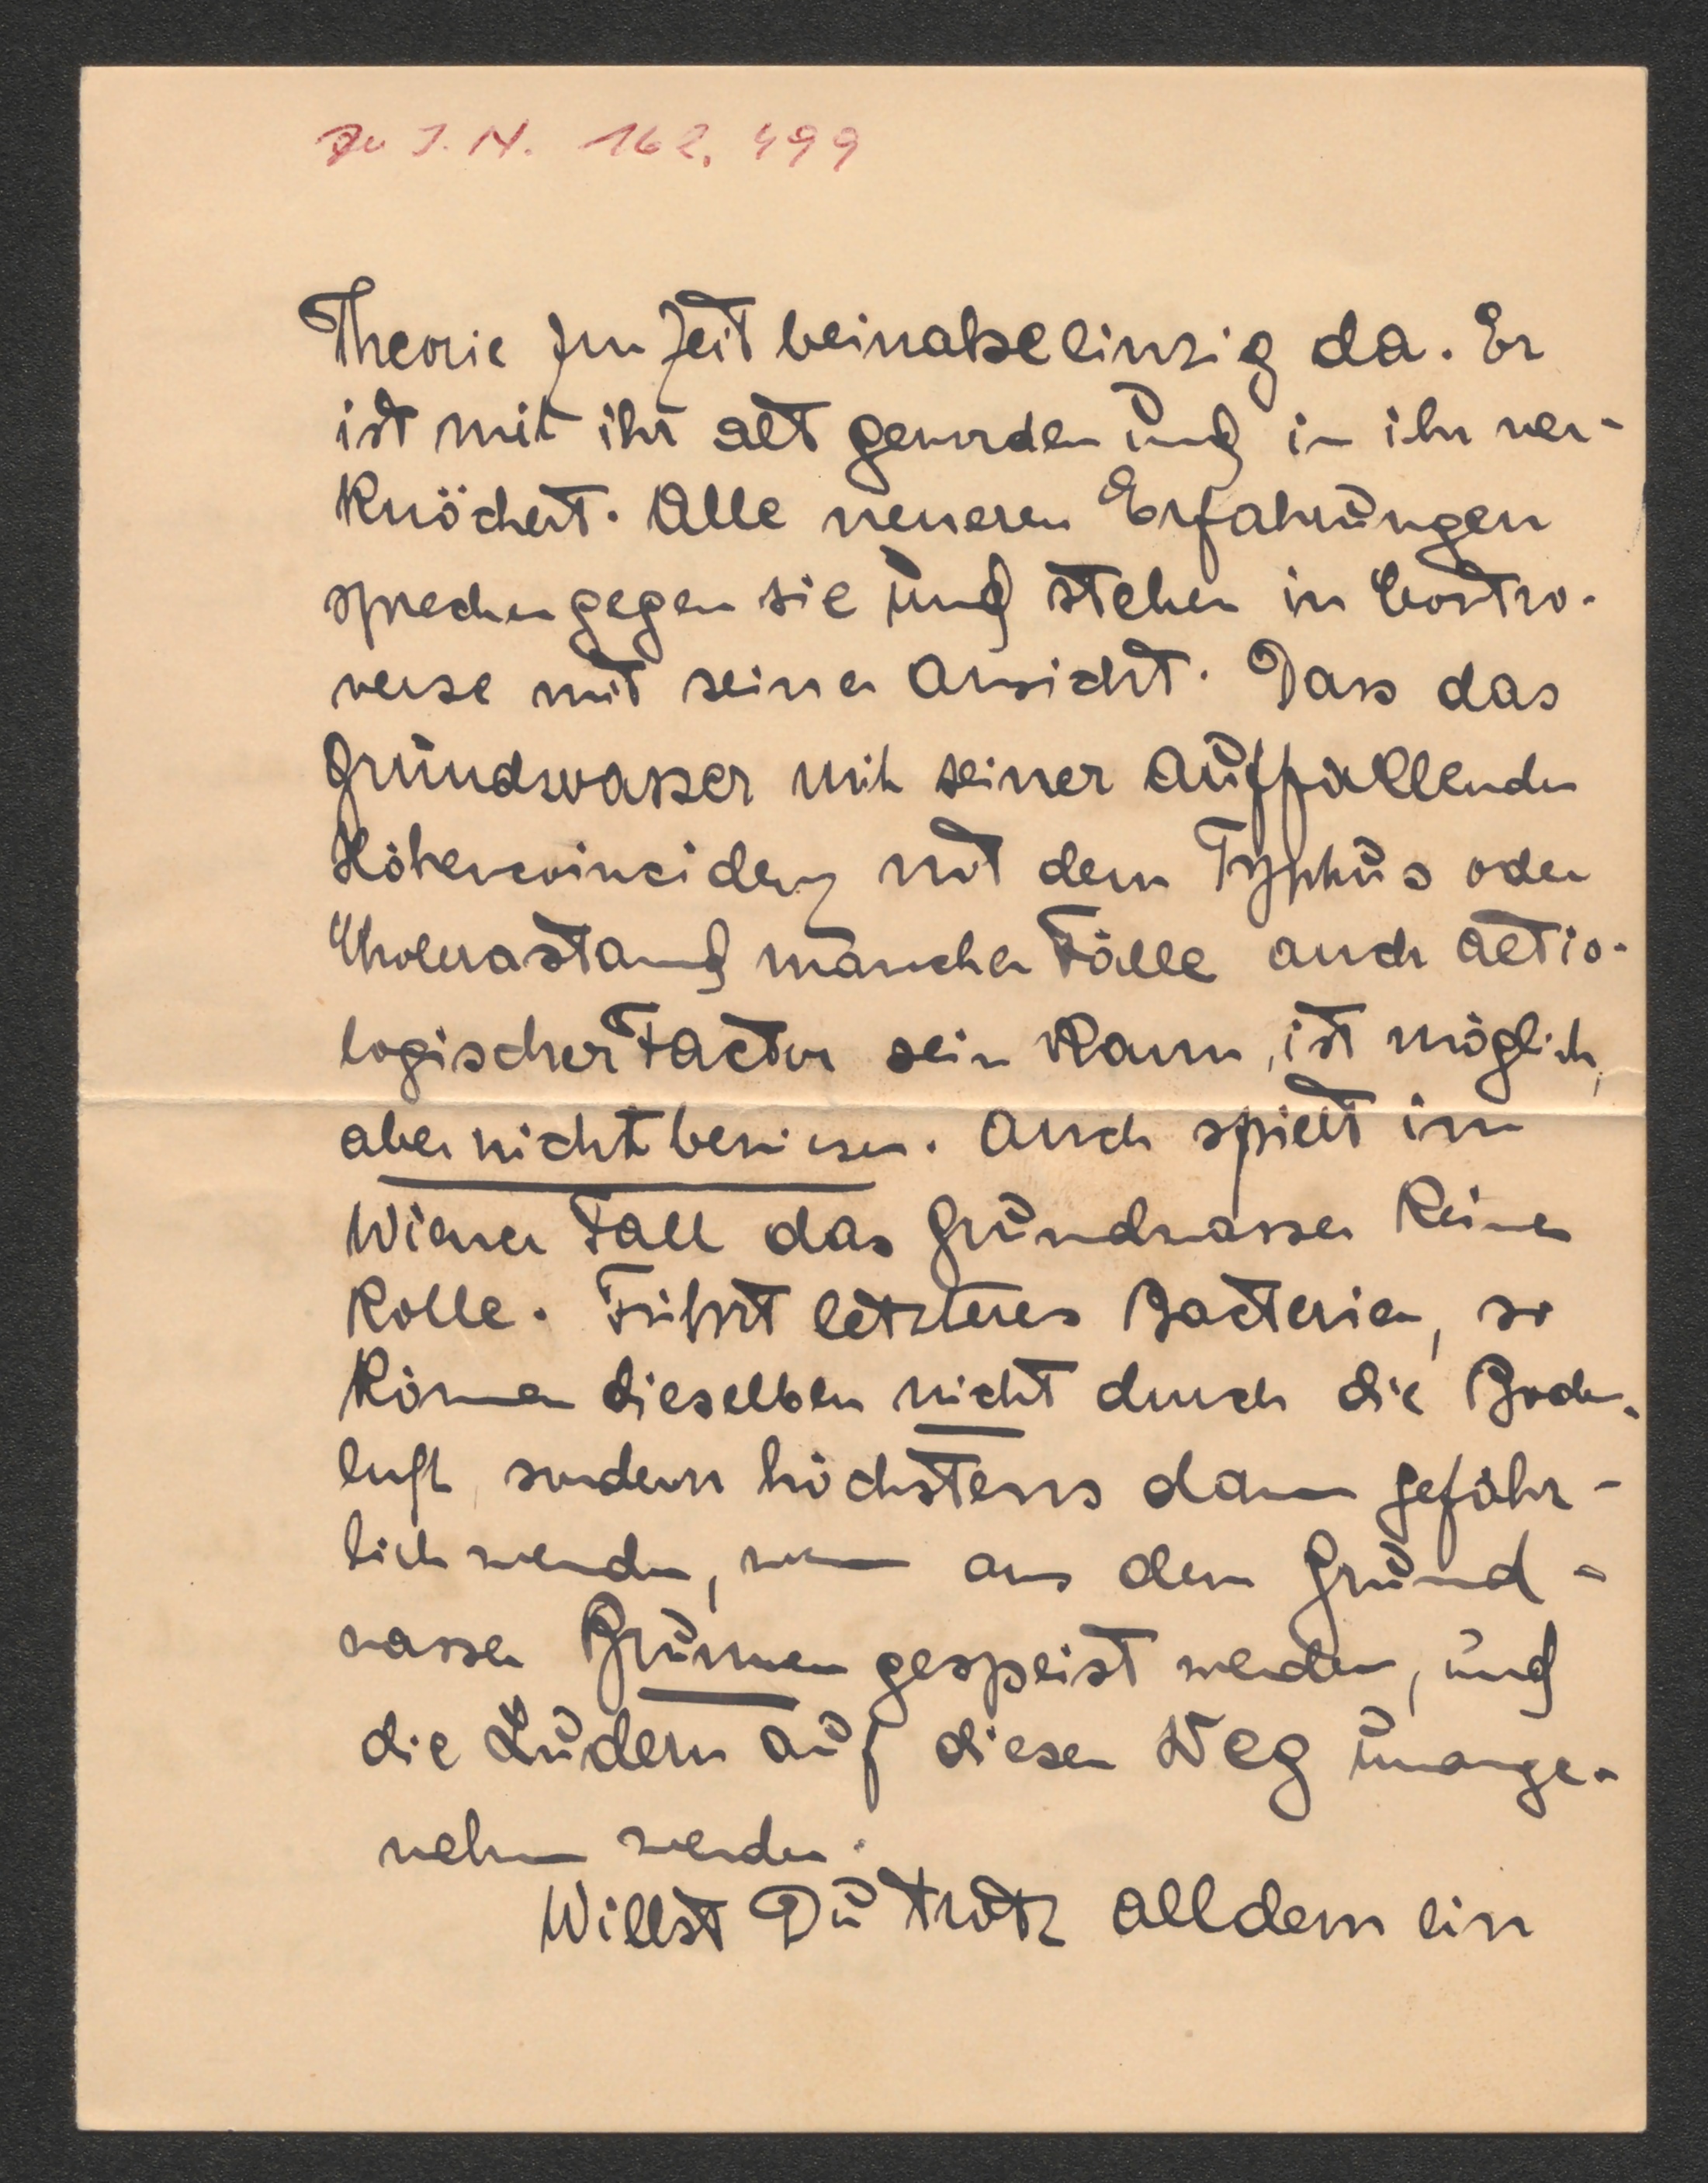 Zu I.N. 162.499
Theorie zur Zeit beinahe einzig da. Er
ist mit ihr alt geworden und in ihr ver-
knöchert. Alle neueren Erfahrungen
sprechen gegen sie und stehen in Contro-
verse mit seiner Ansicht. Dass das
Grundwasser mit seiner auffallenden
Höhencoincidenz mit dem Typhus oder
Cholerastand mancher Fälle auch aetio-
logischer Factor sein kann, ist möglich,
aber nicht bewiesen. Auch spielt im
Wiener Fall das Grundwasser keine
Rolle. Führt letzteres Bacterien, so
können dieselben nicht durch die Boden-
luft, sondern höchstens dann gefähr-
lich werden, wenn aus dem Grund-
wasser Brunnen gespeist werden, und
die Ludern auf diesen Weg unange-
nehm werden.
Willst Du trotz alldem ein